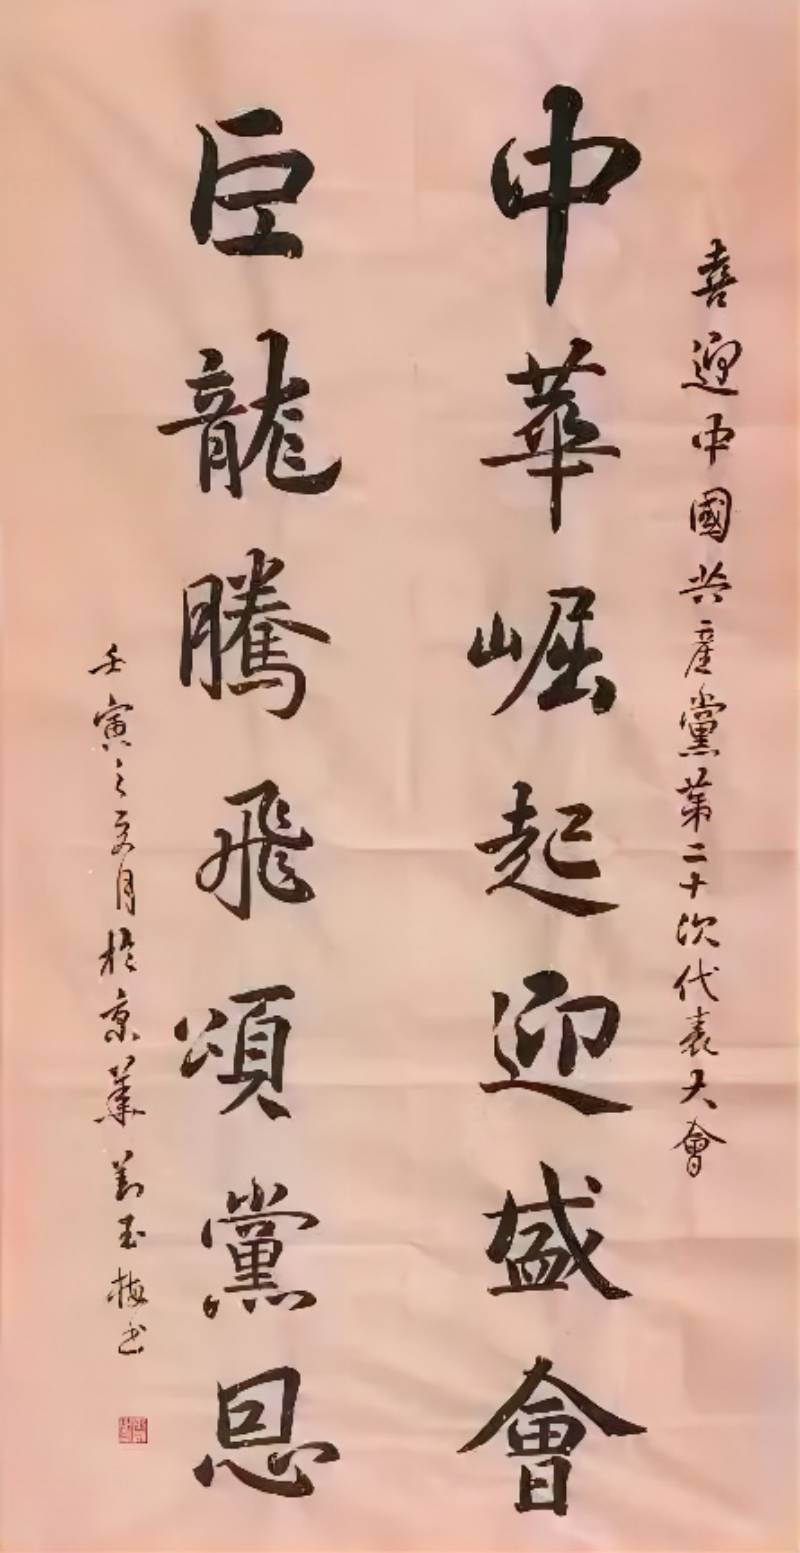 喜迎中國共産黨第二十次代表大會
中華崛起迎盛會
巨龍騰飛頌黨恩
壬寅之夏月於京華劉玉梅书